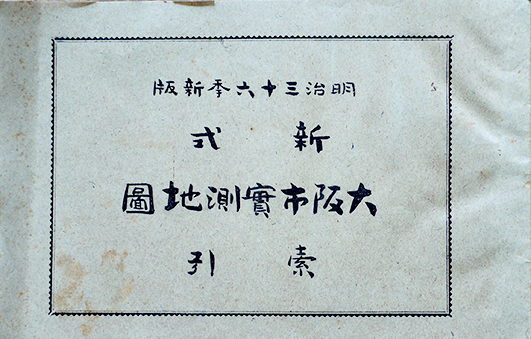 明治三十六季新版
新式
大阪市實測地圖
索引